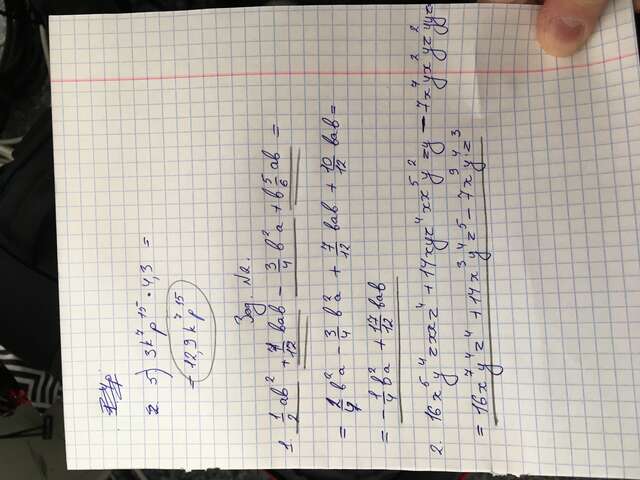 2. 5) 3k⁷p¹⁵ · 4,3 =
= 12,9 k⁷p¹⁵
Зад. №2.
1. 1/2 ab² + 7/12 bab - 3/4 b²a + b 5/6 ab =
= 2/4 b²a - 3/4 b²a + 7/12 bab + 10/12 bab =
= - 1/4 b²a + 17/12 bab
2. 16x⁵y⁴zxxz⁴ + 14xyz⁴xx⁵y²zy - 7x⁴yx²yz²yyz
= 16x⁷y⁴z⁴ + 14x³y⁴z⁵ - 7x⁹y⁴z³